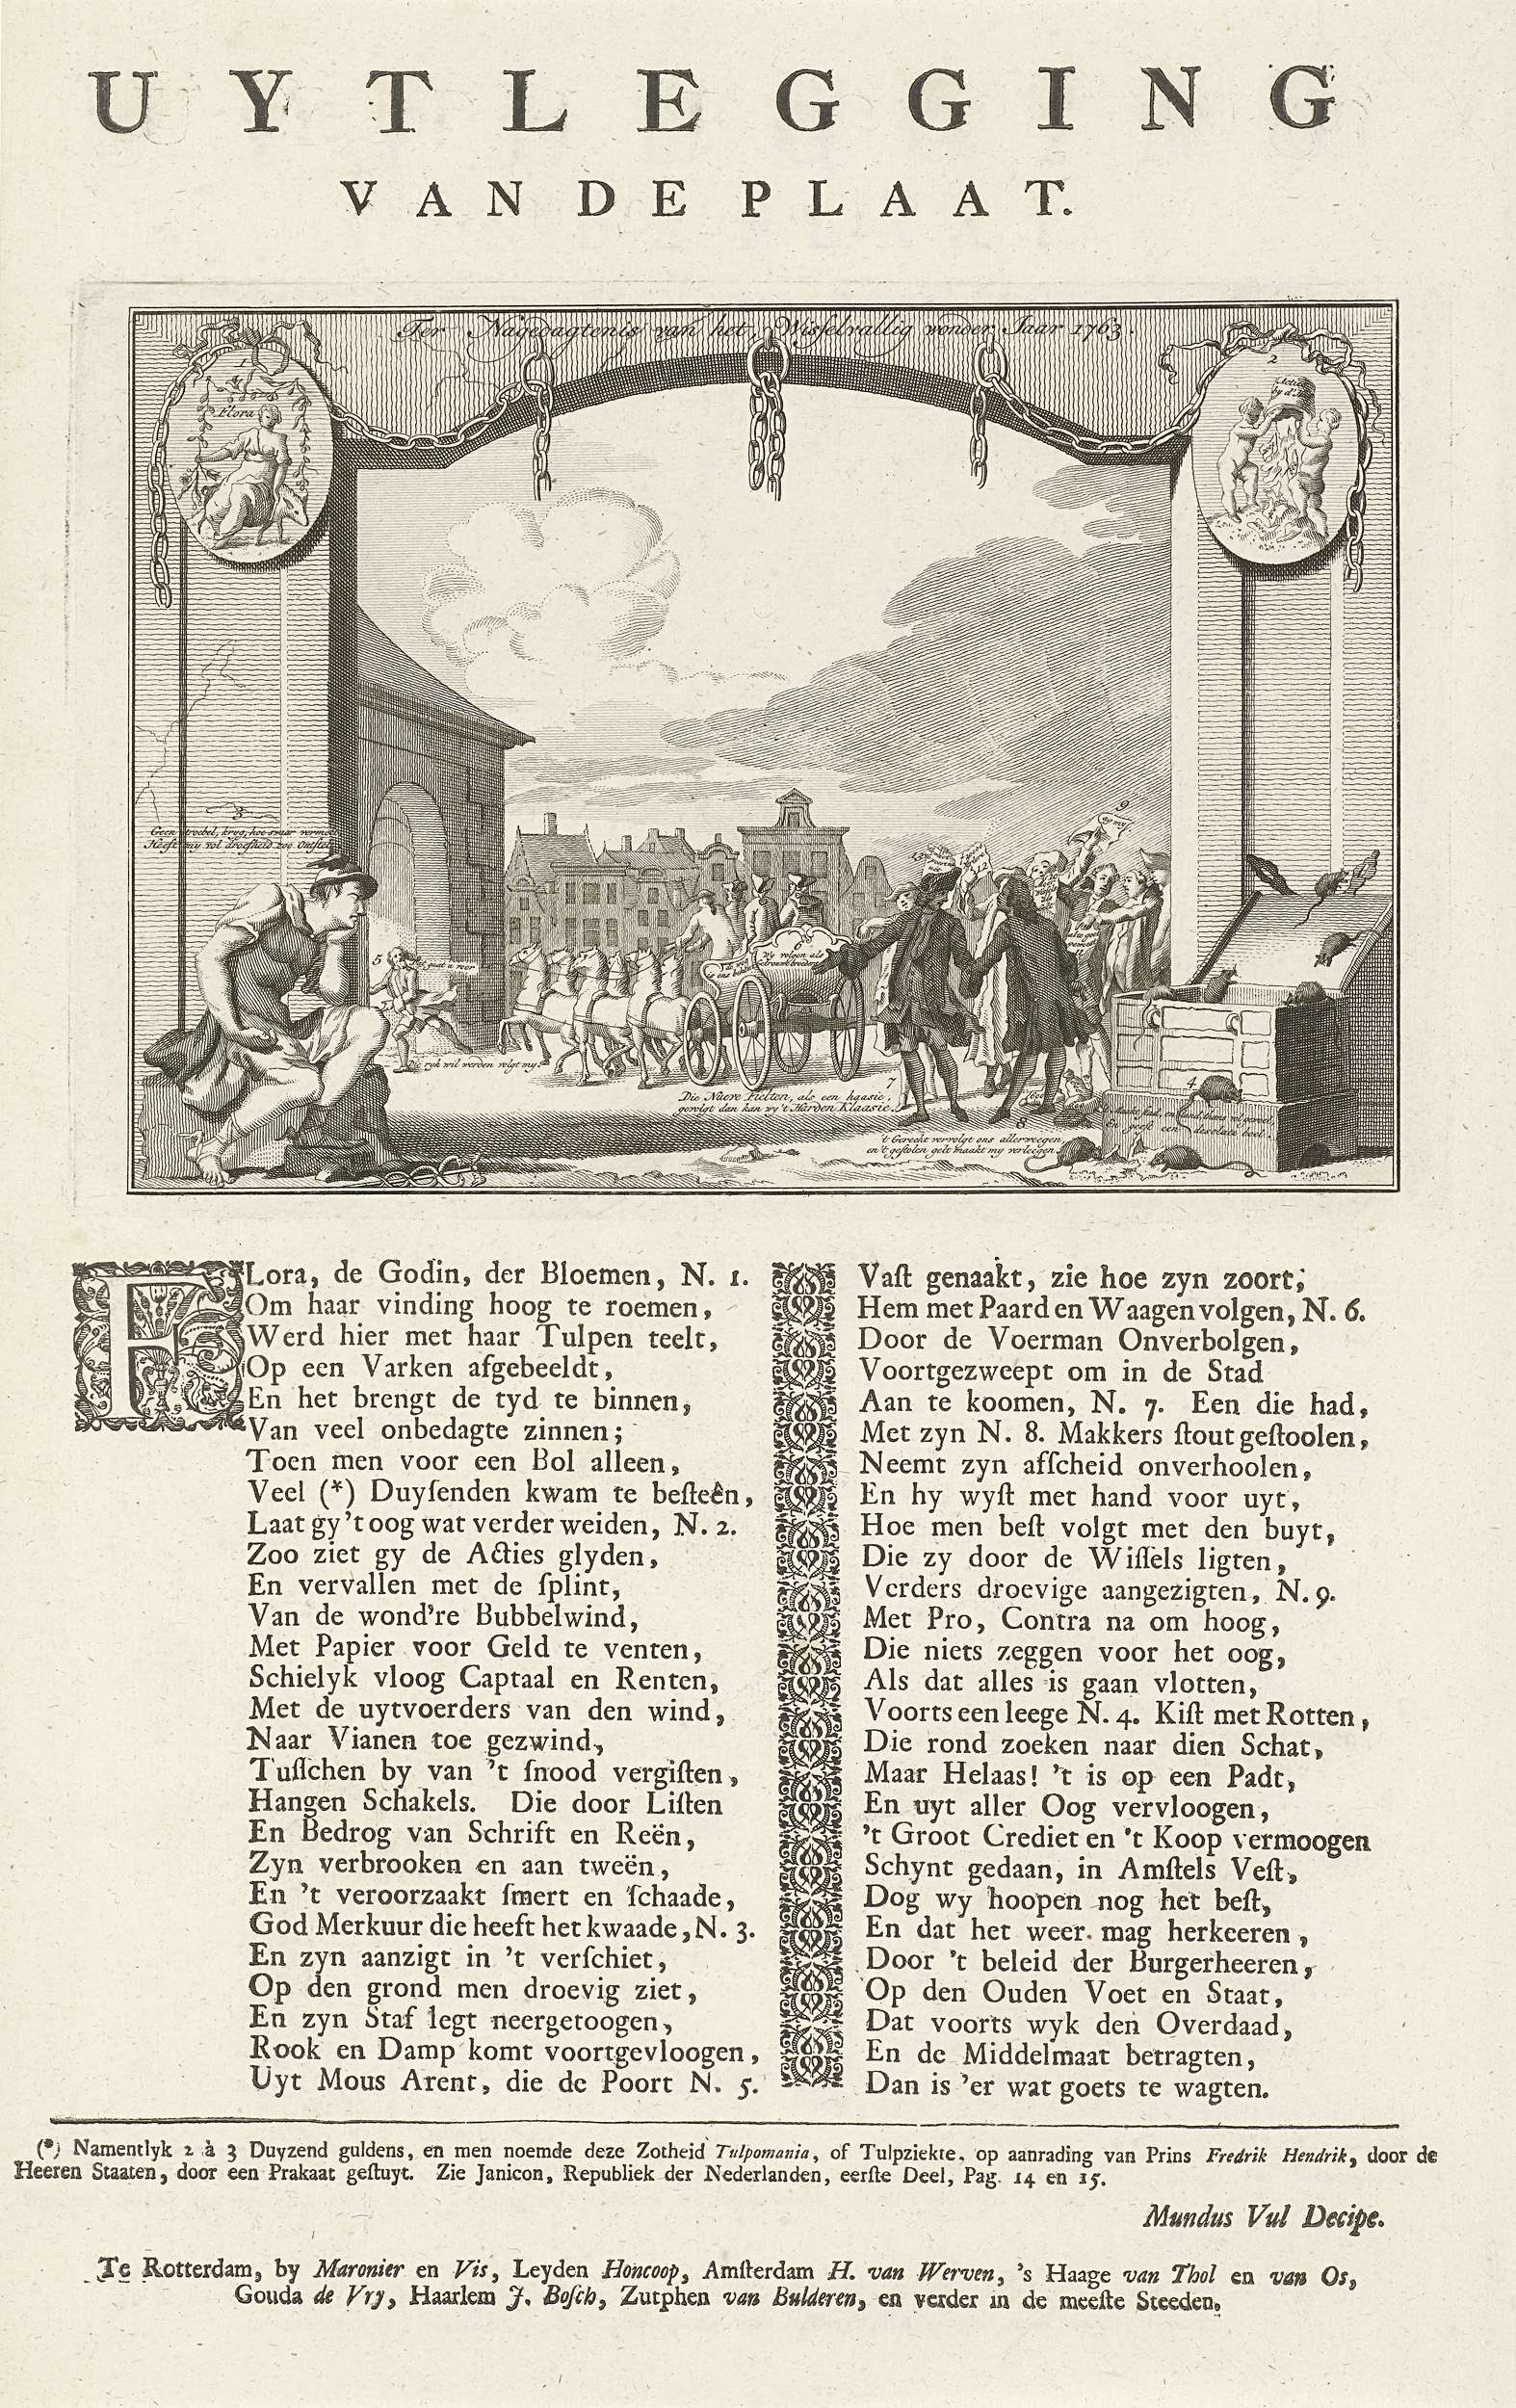 UYTLEGGING
VAN DE PLAAT.
Ter Nagedagtenis van het Wisselvallig wonder Jaar 1763.
1
Flora
2
3
5
Die ryk wil werden volgt my.
6
Wy volgen als
7
8
't Gerecht vervolgt ons allerweegen,
en 't gestolen gelt maakt my verleegen.
9
4
FLora, de Godin, der Bloemen, N. 1.
Om haar vinding hoog te roemen,
Werd hier met haar Tulpen teelt,
Op een Varken afgebeeldt,
En het brengt de tyd te binnen,
Van veel onbedagte zinnen;
Toen men voor een Bol alleen,
Veel (*) Duyſenden kwam te beſteên,
Laat gy 't oog wat verder weiden, N. 2.
Zoo ziet gy de Acties glyden,
En vervallen met de ſplint,
Van de wond're Bubbelwind,
Met Papier voor Geld te venten,
Schielyk vloog Captaal en Renten,
Met de uytvoerders van den wind,
Naar Vianen toe gezwind,
Tuſſchen by van 't ſnood vergiſten,
Hangen Schakels. Die door Liſten
En Bedrog van Schrift en Reën,
Zyn verbrooken en aan tweën,
En 't veroorzaakt ſmert en ſchaade,
God Merkuur die heeft het kwaade, N. 3.
En zyn aanzigt in 't verſchiet,
Op den grond men droevig ziet,
En zyn Staf legt neergetoogen,
Rook en Damp komt voortgevloogen,
Uyt Mous Arent, die de Poort N. 5.
Vaſt genaakt, zie hoe zyn zoort;
Hem met Paard en Waagen volgen, N. 6.
Door de Voerman Onverbolgen,
Voortgezweept om in de Stad
Aan te koomen, N. 7. Een die had,
Met zyn N. 8. Makkers ſtout geſtoolen,
Neemt zyn afſcheid onverhoolen,
En hy wyſt met hand voor uyt,
Hoe men beſt volgt met den buyt,
Die zy door de Wiſſels ligten,
Verders droevige aangezigten, N. 9.
Met Pro, Contra na om hoog,
Die niets zeggen voor het oog,
Als dat alles is gaan vlotten,
Voorts een leege N. 4. Kiſt met Rotten,
Die rond zoeken naar dien Schat,
Maar Helaas! 't is op een Padt,
En uyt aller Oog vervloogen,
't Groot Crediet en 't Koop vermoogen
Schynt gedaan, in Amſtels Veſt,
Dog wy hoopen nog het beſt,
En dat het weer mag herkeeren,
Door 't beleid der Burgerheeren,
Op den Ouden Voet en Staat,
Dat voorts wyk den Overdaad,
En de Middelmaat betragten,
Dan is 'er wat goets te wagten.
(*) Namentlyk 2 à 3 Duyzend guldens, en men noemde deze Zotheid Tulpomania, of Tulpziekte, op aanrading van Prins Fredrik Hendrik, door de
Heeren Staaten, door een Prakaat geſtuyt. Zie Janicon, Republiek der Nederlanden, eerſte Deel, Pag. 14 en 15.
Mundus Vul Decipe.
Te Rotterdam, by Maronier en Vis, Leyden Honcoop, Amſterdam H. van Werven, 's Haage van Thol en van Os,
Gouda de Vry, Haarlem J. Boſch, Zutphen van Bulderen, en verder in de meeſte Steeden.